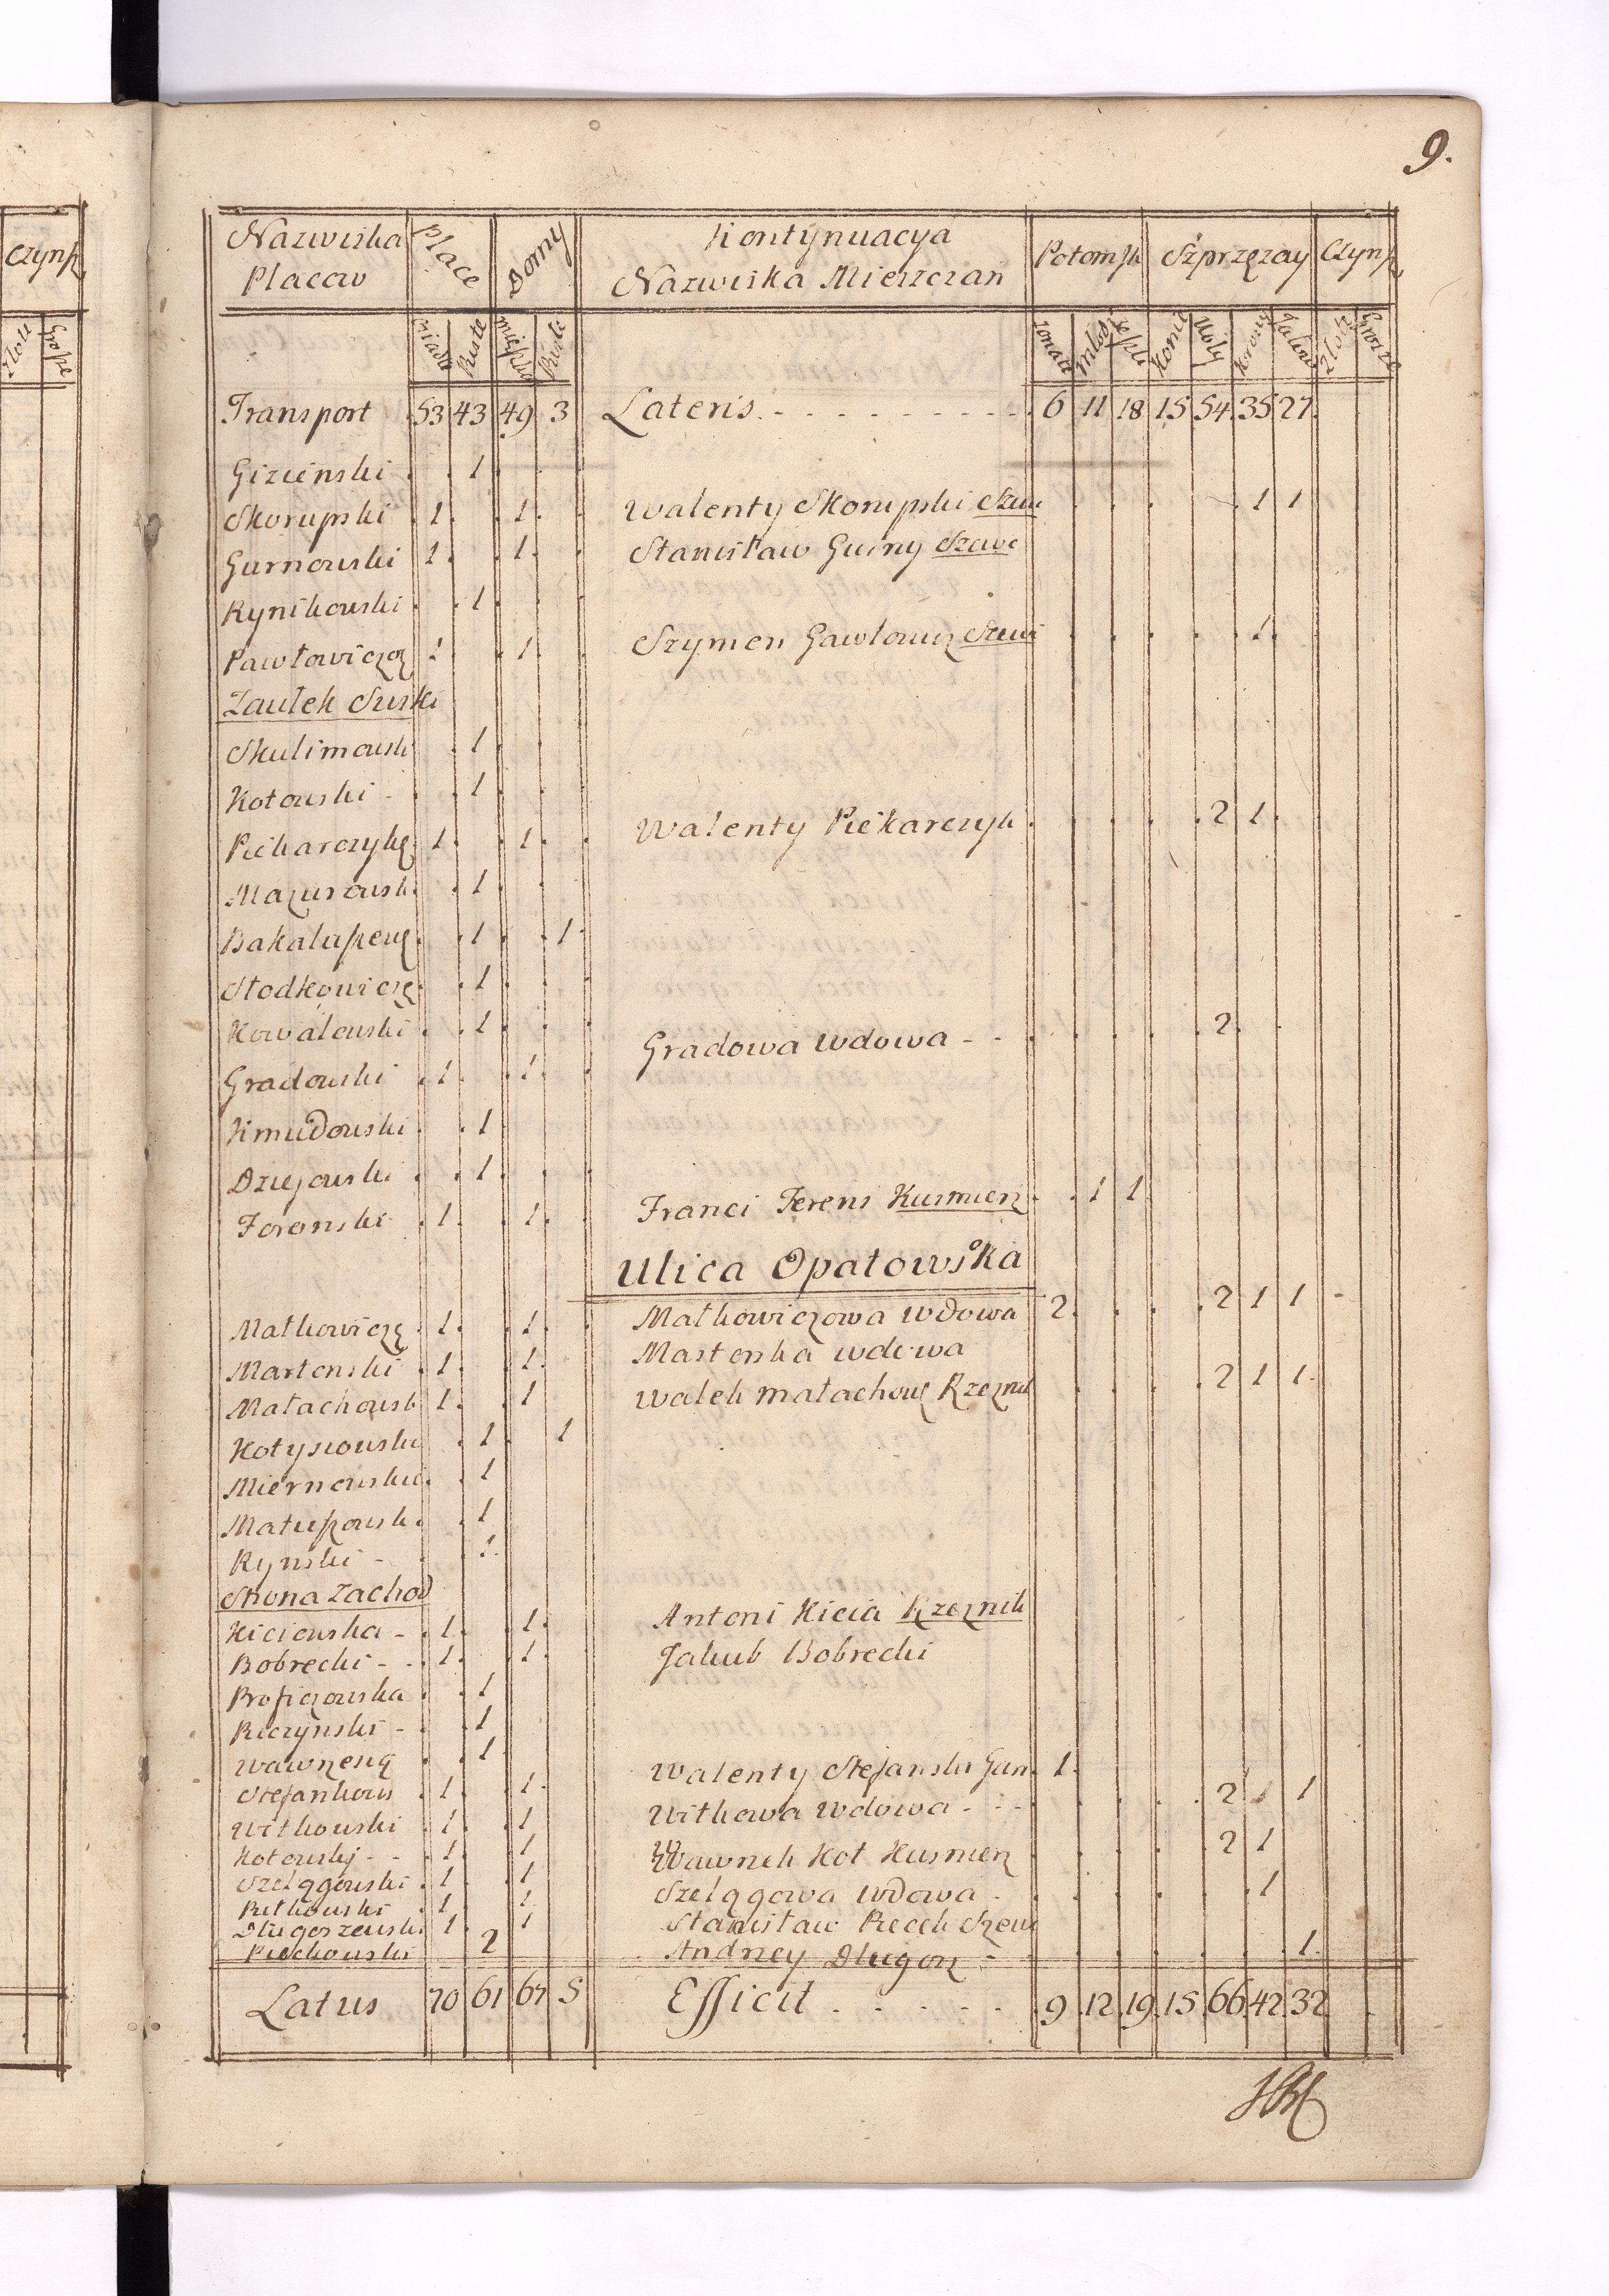 9.
Czynſ.
Złote Grosze
Nazwiska Placow Place Domy Kontynuacya Nazwiska Mieszczan Potomſt Szprzęzay Czynſ
Puste Puste Konie Woły Krowy Złote Grosze
Transport 53 43 49 3 Lateris 6 11 18 15 54 35 27
Gizienski 1
Skorupski 1 1 Walenty Skorupski Szew 1 1
Gurnowski 1 1 Stanisław Gurny Szewc
Rynikowski 1
Pawłowiczoz 1 1 Szymon Gawłowicz Szewc 1
Zaułek Suski
Skulimowsk 1
Kotowski 1
Piekarczykę 1 1 Walenty Piekarczyk 2 1
Mazurowsk 1
Bakalaſzewę 1 1
Słodkowiczę 1
Kowalowski 1
Gradowski 1 1 Gradowa wdowa 2
Kmudowski 1
Dziejowski 1
Forenski 1 1 Franci Ferens Kusmierz 1 1
Ulica Opatowska
Małkowiczę 1 1 Małkowiczowa wdowa 2 2 1 1
Martenski 1 1 Martenska wdowa
Małachowsk 1 1 Walek Małachowę Rzeznik 2 1 1
Kotysiowski 1 1
Miernowski 1
Matuſzowsk 1
Rynski 1
Strona Zachod
Kiciowska 1 1 Antoni Kicia Rzeznik
Bobrecki 1 1 Jakub Bobrecki
Broſiczowska 1
Ruczynski 1
Wawrzenę 1
Stefankows 1 1 Walenty Stefanski Gan 1
Witkowski 1 1 Witkowa Wdowa 2 1 1
Kotowski 1 1 Wawrzek Kot Kusmierz 2 1
Szelągowski 1 1 Szelągowa wdowa 1
Retkowski 1 1 Stanisław Recek Szewc
Długoszewski 1 1 Andrzey Długosz 1
Piechowski 2
Latus 70 61 67 5 Efficit 9 12 19 15 66 42 32